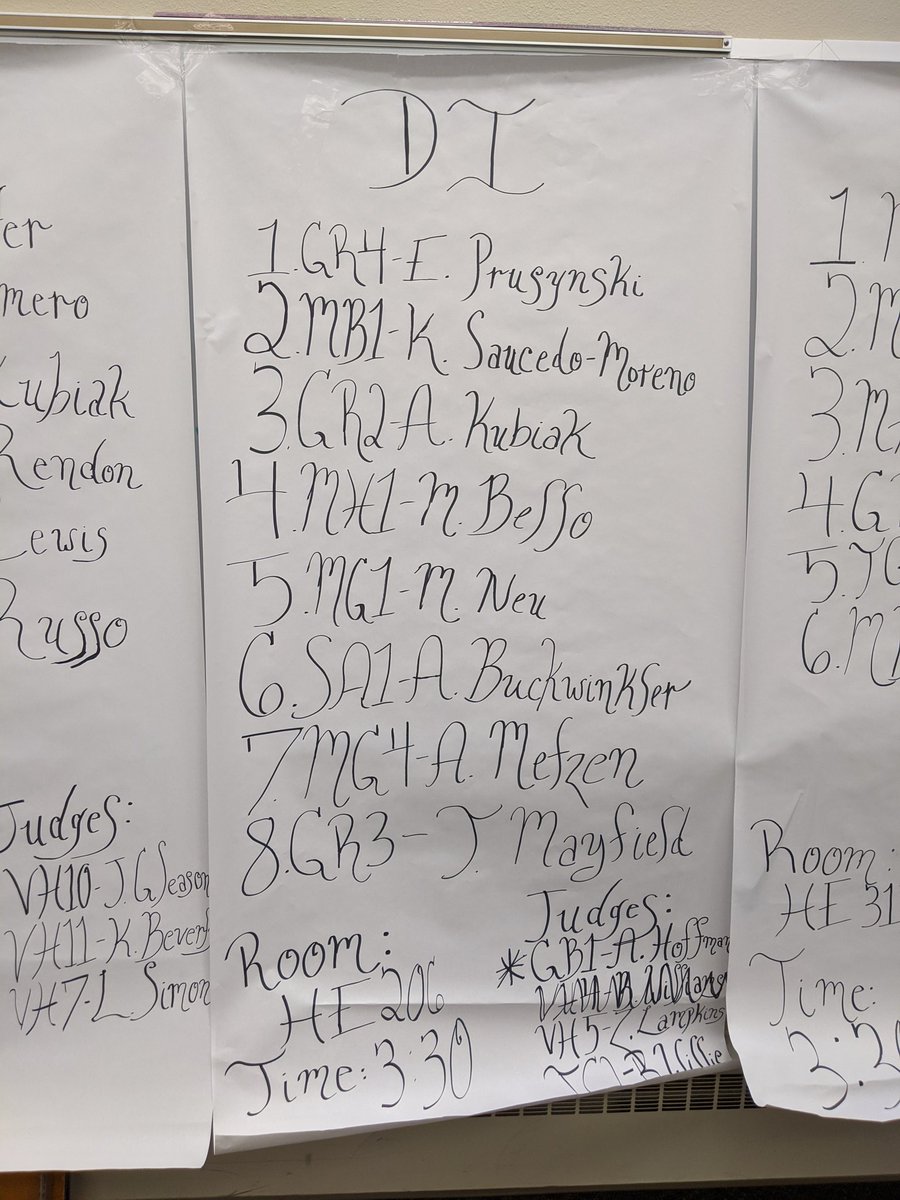 er
mero
Kubiak
Rendon
Lewis
Russo
Judges:
VH10-J.Gleason
VH11-K.Beverf
VH7-L.Simon
DI
1.GR4-E. Prusynski
2.MB1-K. Saucedo-Moreno
3.GR2-A. Kubiak
4.MH1-M. Besso
5.MG1-M. Neu
6.SA1-A. Buckwinkler
7.MG4-A. Metzen
8.GR3-J. Mayfield
Room:
HE 206
Time:3:30
Judges:
*GB1-A.Hoffman
VH5-Z.Lampkins
1.
2.M
3.M
4.G
5.JG
6.M
Room:
HE 31
Time:
3:30